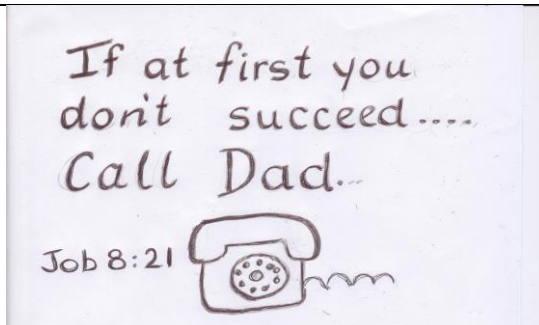 If at first you
don't succeed....
Call Dad...
Job 8:21